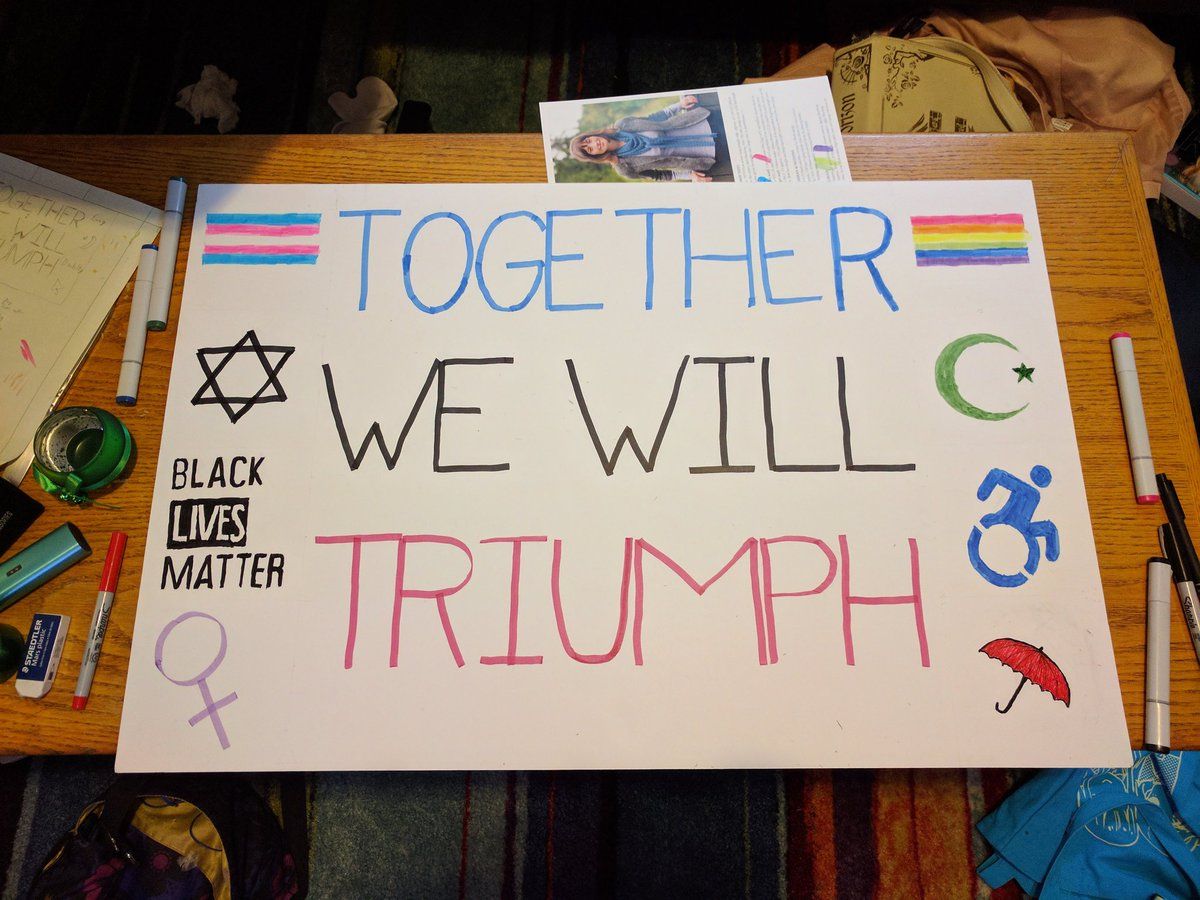 TOGETHER
WE WILL
TRIUMPH
BLACK
LIVES
MATTER
OGETHER
WILL
UMPH
STAEDTLER
Mars plastic